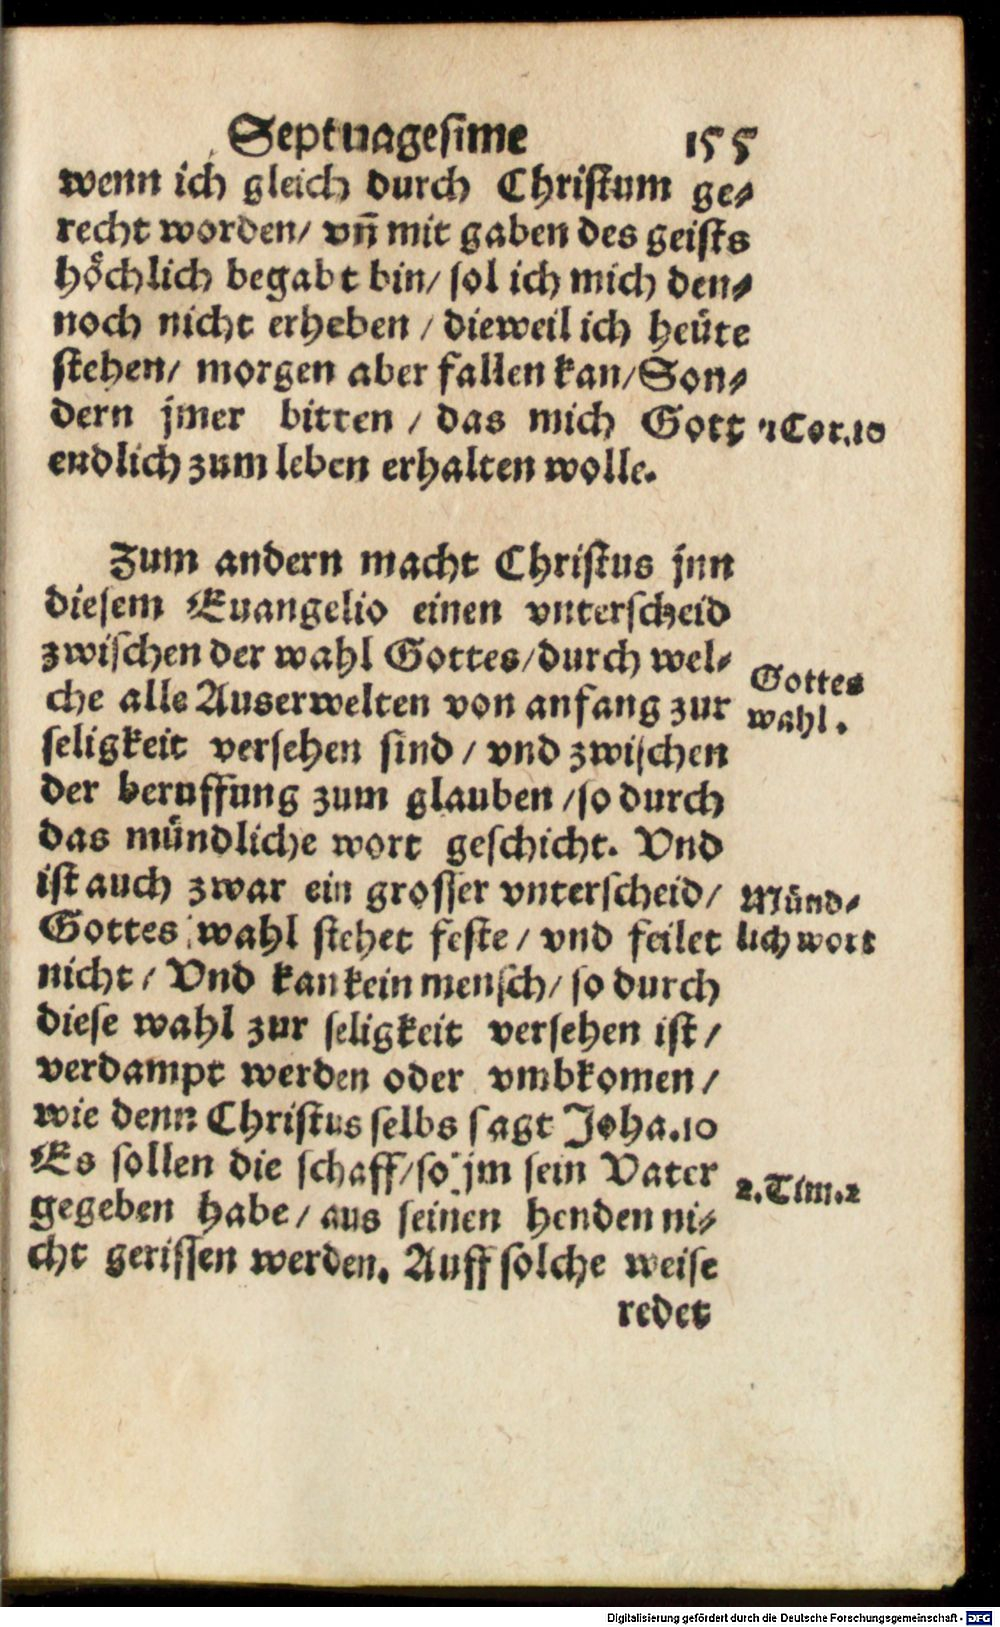 Septuagesime 155
wenn ich gleich durch Christum ge⸗
recht worden/ vñ mit gaben des geists
hoͤchlich begabt bin/ sol ich mich den⸗
noch nicht erheben / dieweil ich heüte
stehen/ morgen aber fallen kan/ Son⸗
dern jmer bitten / das mich Gott
1 Cor.10
endlich zum leben erhalten wolle.
Zum andern macht Christus jnn
diesem Euangelio einen vnterscheid
zwischen der wahl Gottes/ durch wel⸗
Gottes
che alle Auserwelten von anfang zur
wahl.
seligkeit versehen sind / vnd zwischen
der beruffung zum glauben / so durch
das mündliche wort geschicht. Vnd
ist auch zwar ein grosser vnterscheid/
Münd⸗
Gottes wahl stehet feste / vnd feilet
lich wort
nicht / Vnd kan kein mensch/ so durch
diese wahl zur seligkeit versehen ist /
verdampt werden oder vmbkomen /
wie denn Christus selbs sagt Joha.10
Es sollen die schaff/ so jm sein Vater
2.Tim.2
gegeben habe / aus seinen henden ni⸗
cht gerissen werden. Auff solche weise
redet
Digitalisierung gefördert durch die Deutsche Forschungsgemeinschaft - DFG